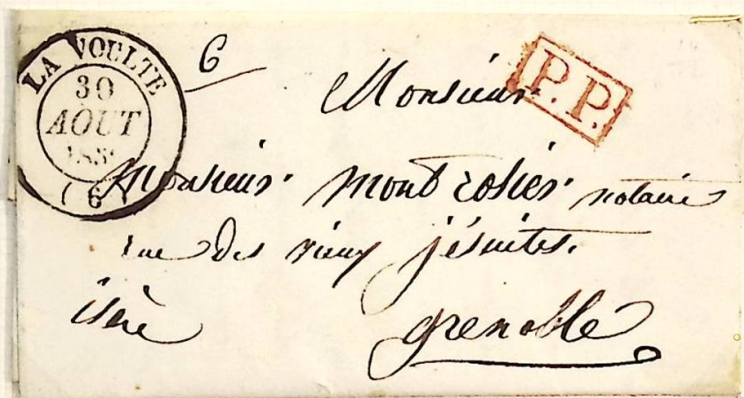 LA VOULTE
30
AOUT
(6)
6
P.P.
Monsieur
Monsieur montrosier notaire
rue des vieux jésuites.
isère
grenoble